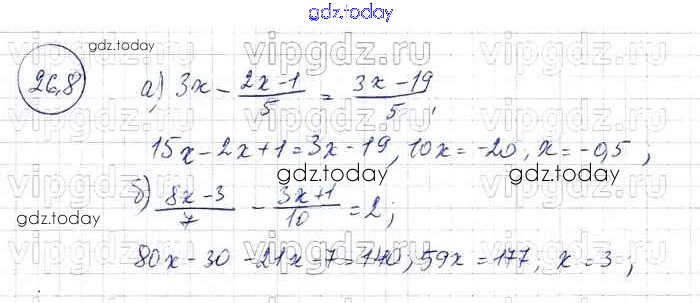 gdz.today
vipgdz.ru vipgdz.ru vipgdz.ru
26.8 а) 3x - (2x-1)/5 = (3x-19)/5,
15x-2x+1=3x-19, 10x=-20, x=-0,5;
б) (8x-3)/7 - (3x+1)/10 = 2;
80x-30-21x-7=140; 59x=177; x=3;
gdz.today
gdz.today
gdz.today
gdz.today
gdz.today